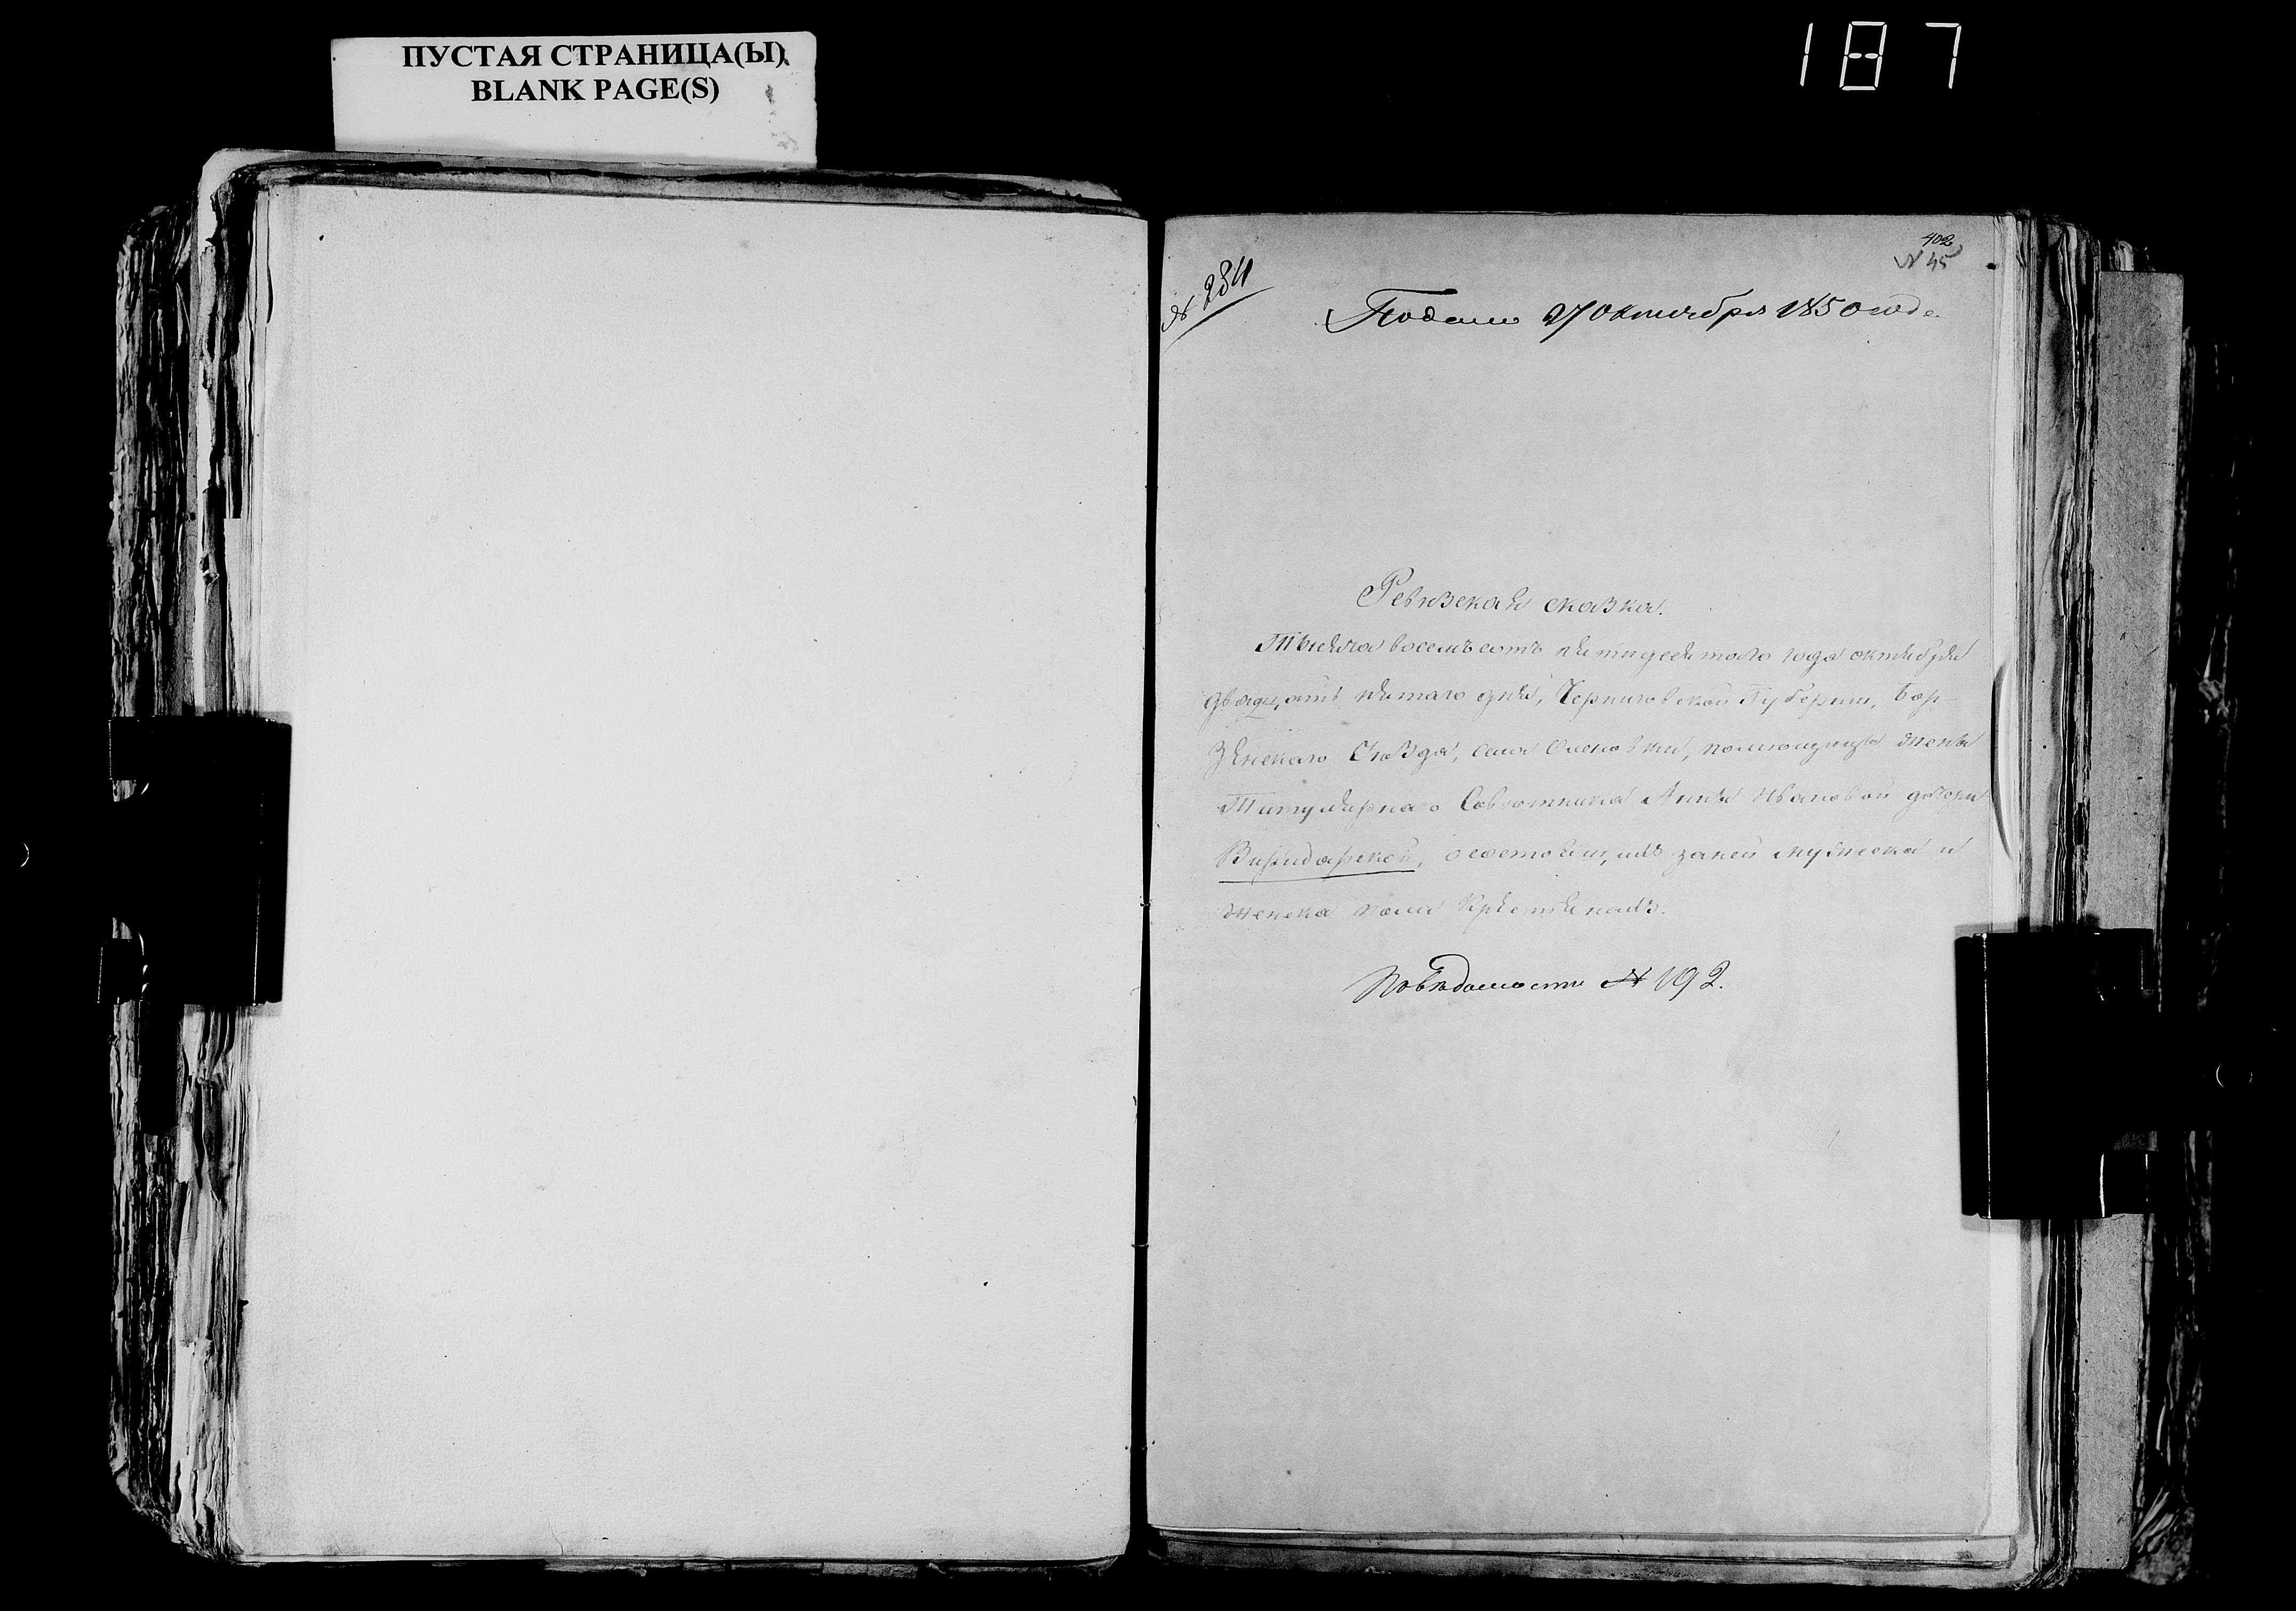 ПУСТАЯ СТРАНИЦА(Ы)
BLANK PAGE(S)
187
402
№ 45
№ 284
Подана 27 октября 1850 года
Ревизская сказка.
Тысяча восемьсотъ пятидесятого года октября
двадцать пятаго дня, Черниговской Губернии, Бор-
зенскаго Уѣзда, села Оленовки, помещицы жены
Титулярнаго Совѣтника Анны Ивановой дочери
о состоящихъ за ней мужеска и
женска пола крестьянахъ.
Повѣдомости № 192.